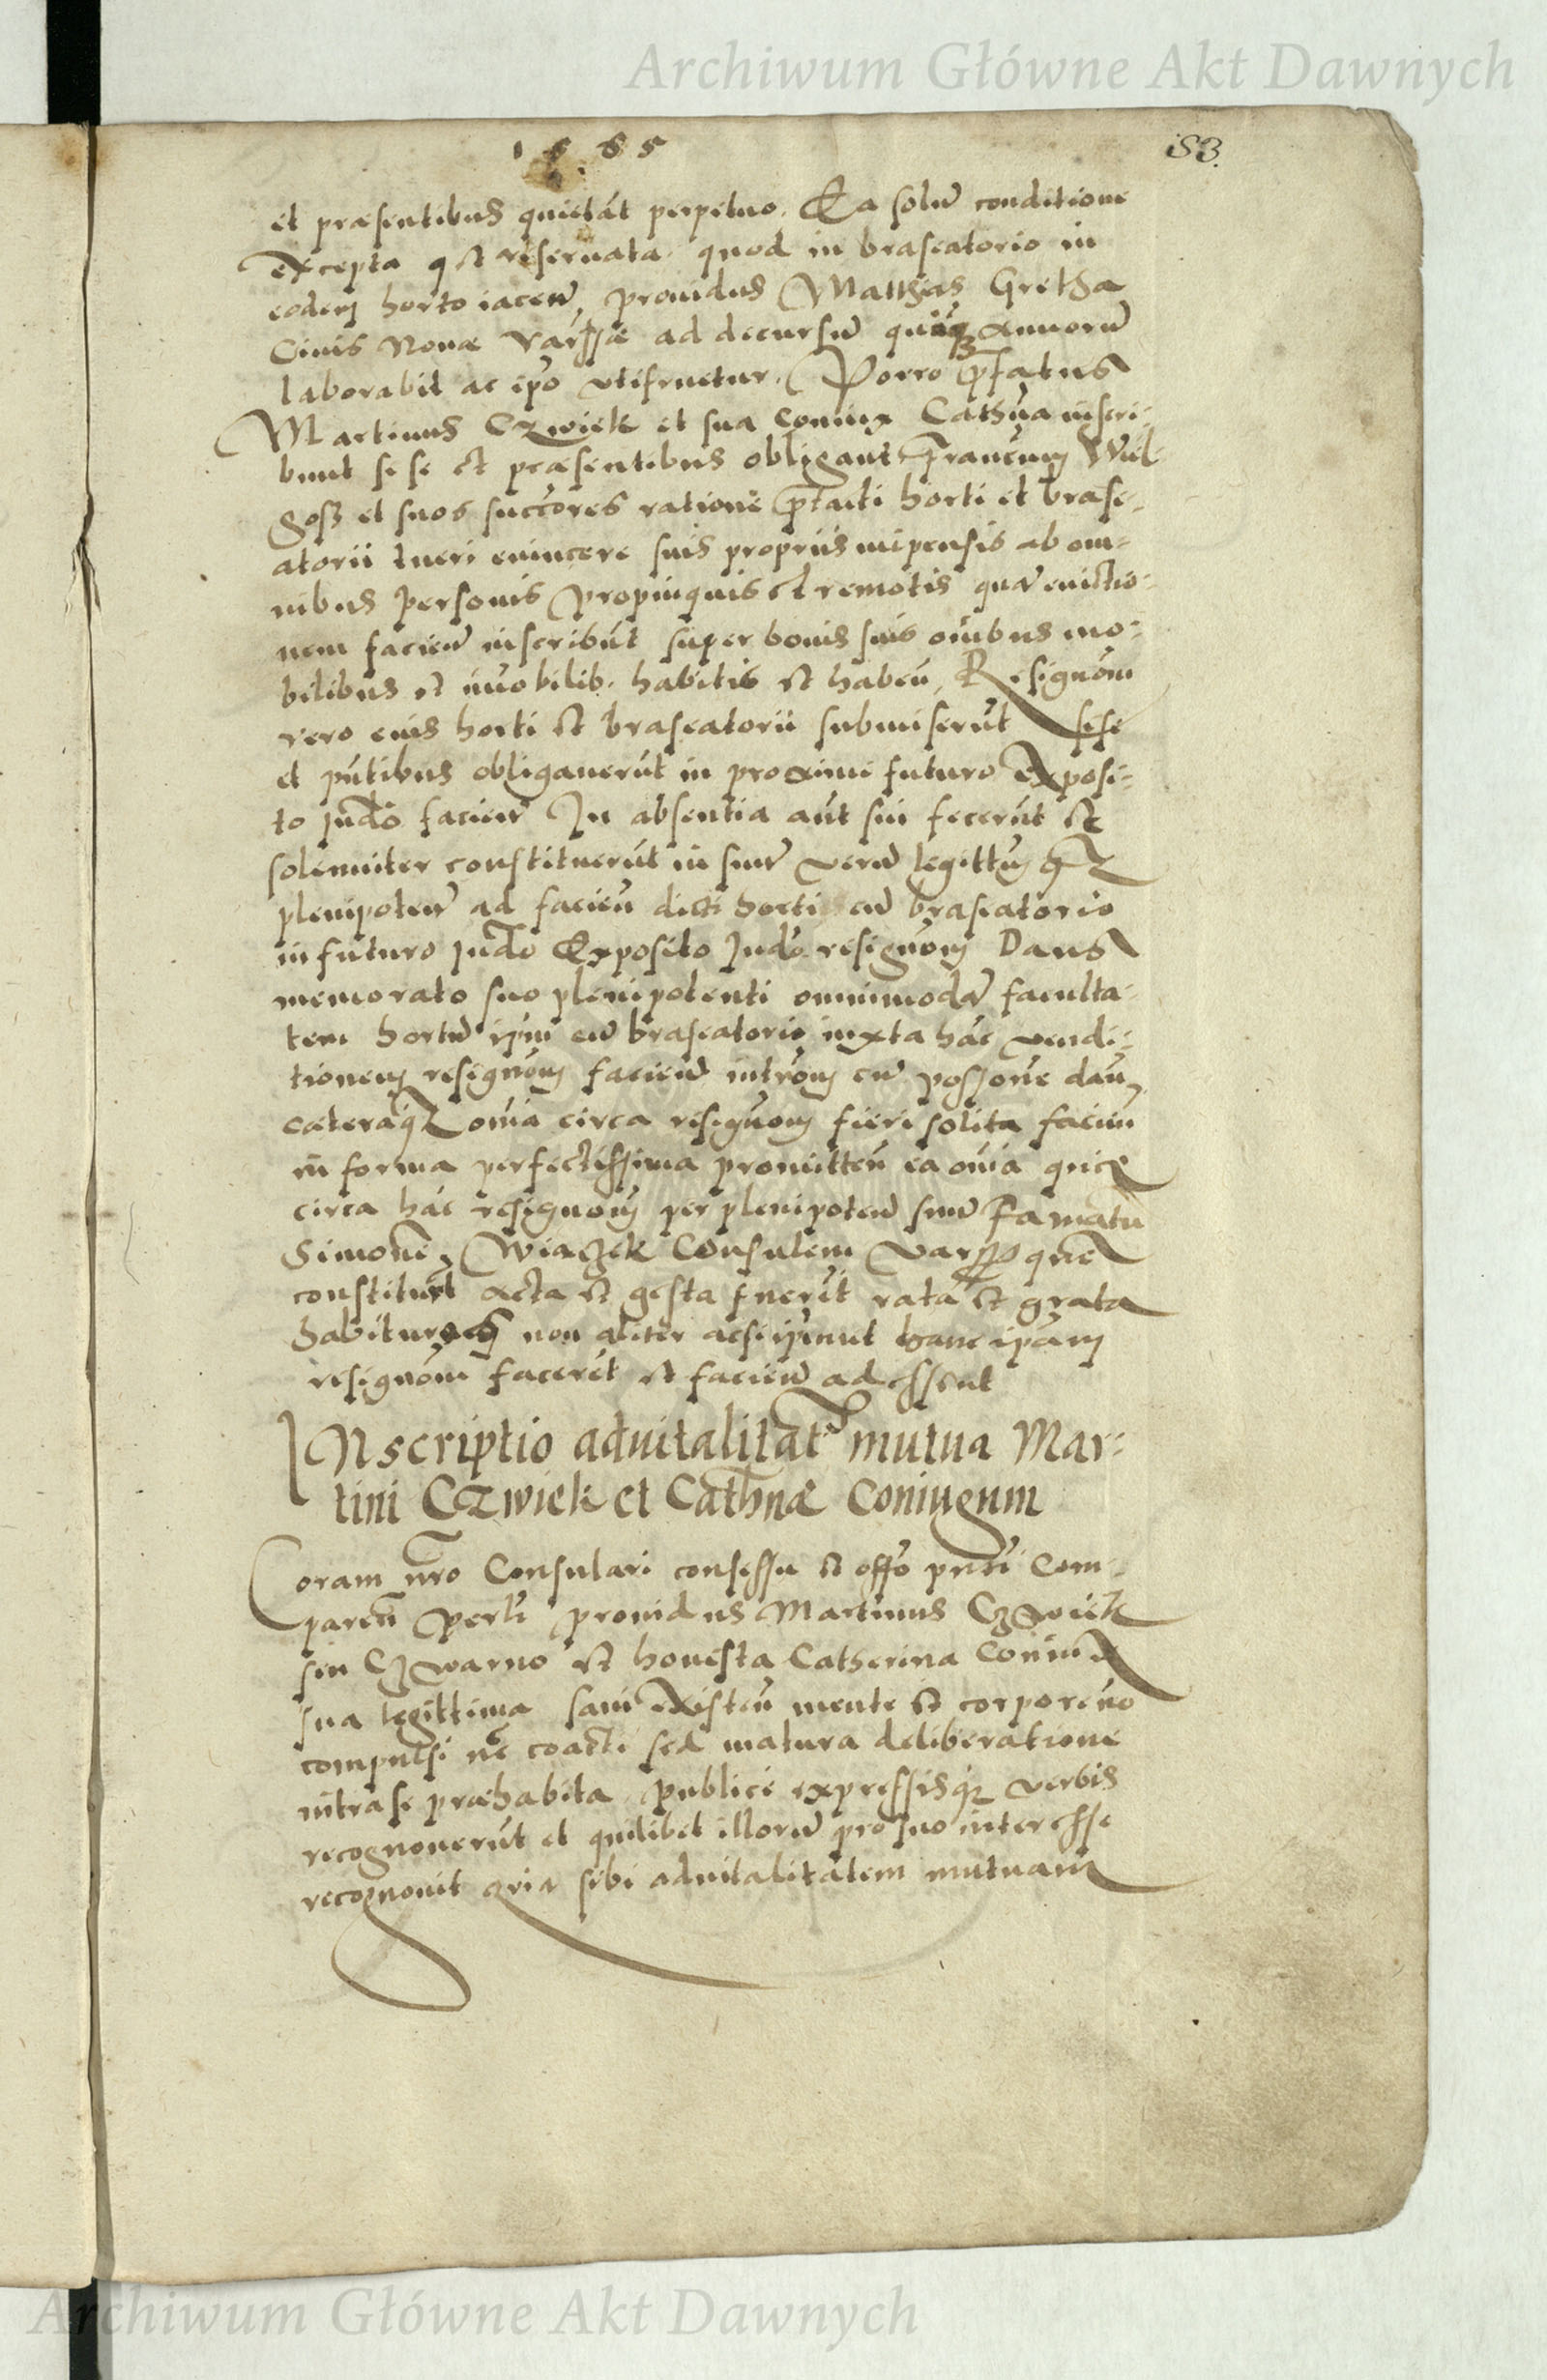 Archiwum Główne Akt Dawnych
1565
183.
et præsentibus quietāt perpetuo. Ea solū conditione
excepta et reseruata quod in braseatorio in
eodem horto iaceñ prouidus Matthias Gretha
Ciuis Nouæ Varssæ ad decursū quinq annorū
laborabit ac ipō vtifruetur. Porro p̄fatus
Martinus Czwiek et sua coniux Cathna inscri-
bunt se se et præsentibus obligant Francum Wiel
gosz et suos succōres ratione p̄tacti horti et brase-
atorii tueri euincere suis propriis inpensis ab om-
nibus personis propinquis et remotis quā euictio-
nem facieñ inscribūt super bonis suis oībus mo-
bilibus et īmobilib. habitis et habeñ, Resignōm
vero eius horti et braseatorii submiserūt sese
et pn̄tibus obligauerūt in proximi futuro Exposi-
to Judō facieñ In absentia aūt sui fecerūt et
solenniter constituerūt in suū verū legittm̄
plenipoteñ ad facieñ dicti horti cū braseatorio
in futuro Judō Exposito Judō resignōm Dans
memorato suo plenipotenti omnimodā faculta-
tem hortū ipm̄ cū braseatorio iuxta hāc vendi-
tionem resignōm facieñ intrōm cū possōne dañ
cæteraq oīa circa resignōm fieri solita facieñ
in forma perfectissima promitteñ ea oīa quæ
circa hāc resignōm per plenipoteñ suū famatū
Simonē Wiaczek Consulem Vars quē
constituūt acta et gesta fuerīt rata et grata
habituros non aliter acsi ipīmet hanc ipām
resignōm facerēt et facieñ adessent
INscriptio aduitalitat mutua Mar-
tini Czwiek et Cathnæ Coniugum
Coram nrō Consulari consessu et offō pn̄ti Com-
pareñ perlr̄ prouidus Martinus Czwiek
seu Czwarno et honesta Catherina Coniux
sua legittima sani existeñ mente et corpore nō
compulsi nec coacti sed matura deliberatione
intra se præhabita publice expressisq verbis
recognouerūt et quilibet illorū pro suo interesse
recognouit qria sibi aduitalitatem mutuam
Archiwum Główne Akt Dawnych